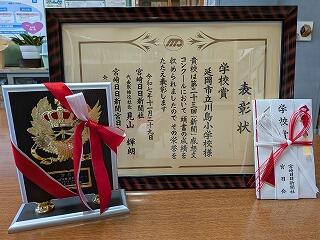 表彰状
学校賞
延岡市立川島小学校様
貴校は第二十三回「新聞」感想文
コンクールにおいて 頭書の成績を
収められましたので その栄誉を
たたえ表彰します
令和七年十一月二十九日
宮崎日日新聞社
代表取締役社長 見山輝朗
宮崎日日新聞宮日会
学校賞
宮崎日日新聞社
宮日会